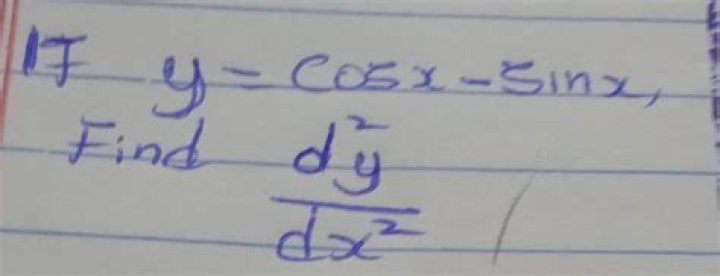 If y = cosx - sinx,
Find d²y
dx²